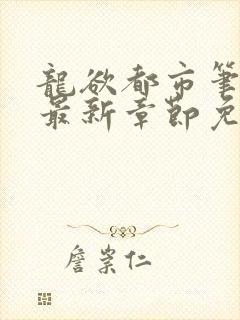 龍欲都市筆
最新章節免
詹崇仁